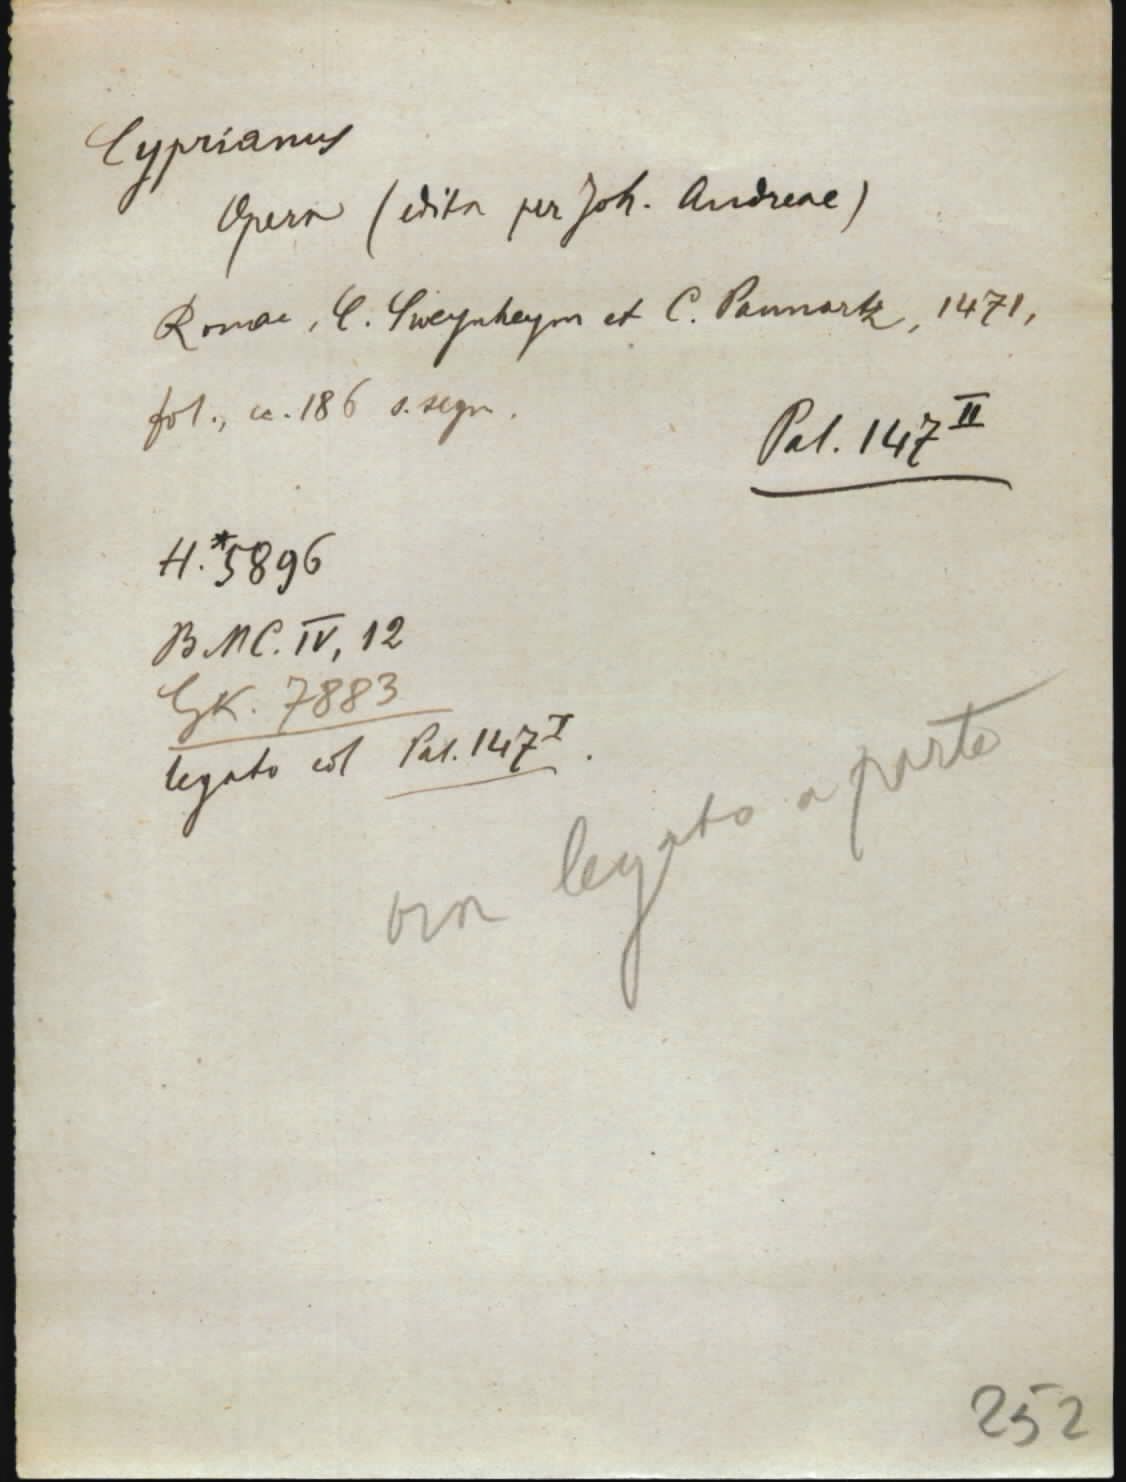 Cyprianus
Opera (edita per Joh. Andreae)
Romae, C. Sweynheym et C. Pannartz, 1471,
fol., cc. 186 s. segn.
Pal. 147 II
H. *5896
BMC. IV, 12
GK. 7883
legato col Pal. 147 I.
ora legato a parte
252